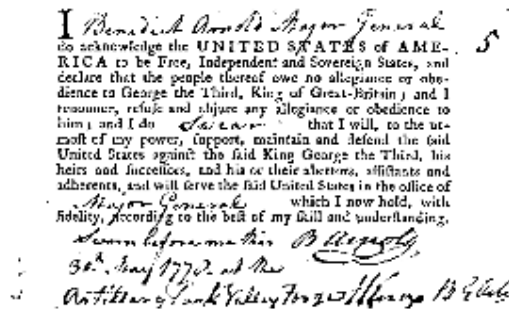 I Benedict Arnold Major General
do acknowledge the UNITED STATES of AME-
RICA to be Free, Independent and Sovereign States, and
declare that the people thereof owe no allegiance or obe-
dience to George the Third, King of Great-Britain; and I
renounce, refuse and abjure any allegiance or obedience to
him; and I do Swear that I will, to the ut-
most of my power, support, maintain and defend the said
United States against the said King George the Third, his
heirs and successors, and his or their abettors, assistants and
adherents, and will serve the said United States in the office of
Major General which I now hold, with
fidelity, according to the best of my skill and understanding.
Sworn before me this B Arnold
30th May 1778 at the
Artillery Park Valley Forge H Knox B G
5